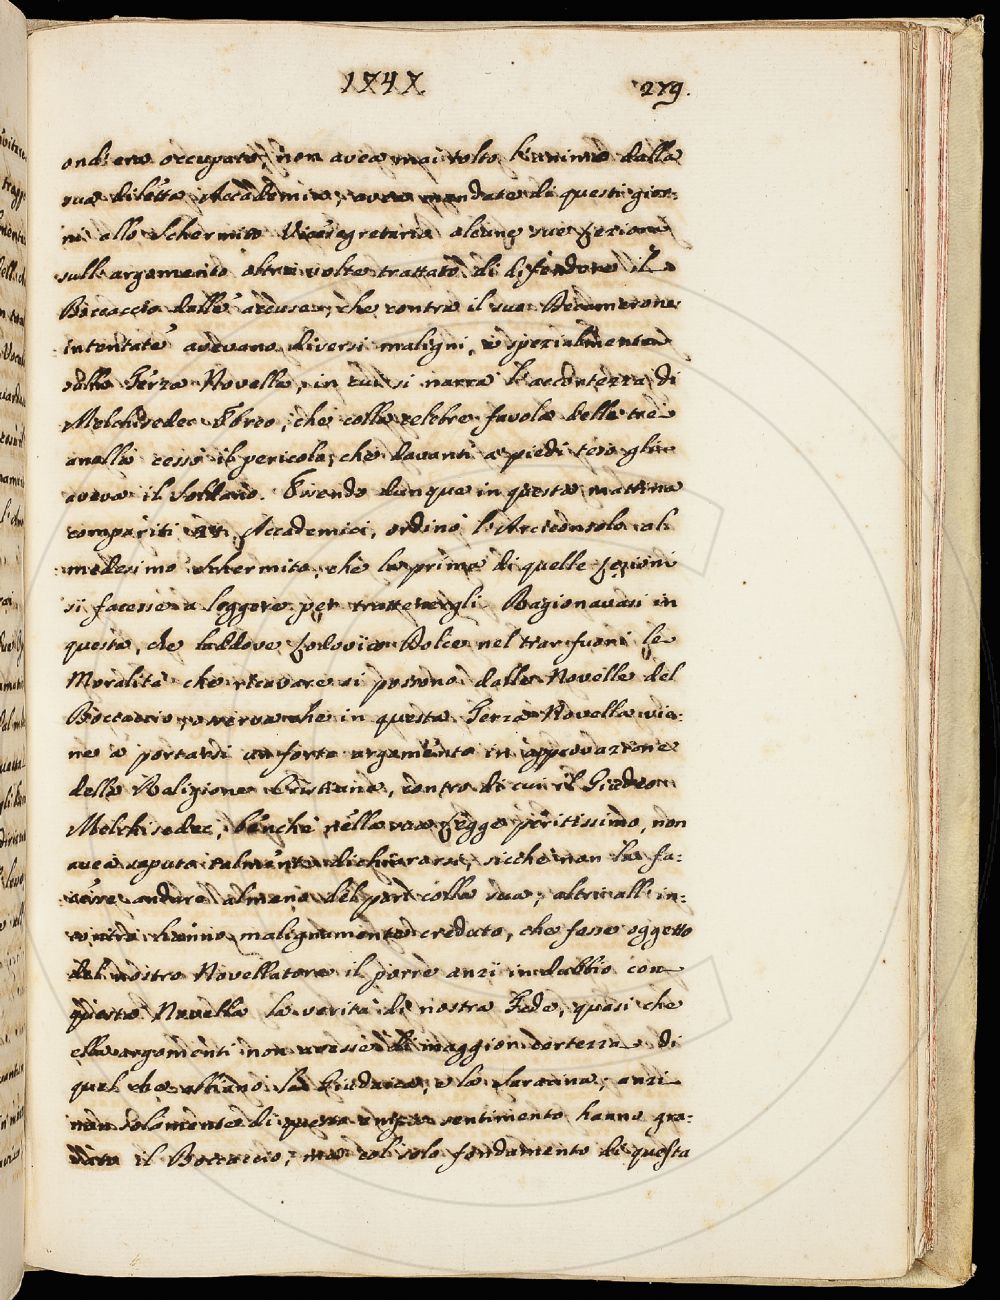 1747
279.
ond'era occupato, non avea mai tolto l'animo dalla
sua diletta Accademia, aveva mandate di questi gior:
ni allo Schermito Vicesegretario alcune sue Lezioni
sull'argomento altra volta trattato di difendere il
Boccaccio dalle accuse, che contra il suo Decamerone
intentate avevano diversi maligni, e spezialmente
sulla Terza Novella, in cui si narra l'accortezza di
Melchisedec Ebreo, che colla celebre favola delle tre
anella cessò il pericolo, che davanti a' piedi teso gli
aveva il Soldano. Essendo dunque in questa mattina
compariti Accademici, ordinò l'Arciconsolo al
medesimo Schermito, che la prima di quelle Lezioni
si facesse a leggere per trattenergli. Ragionavasi in
questa, che laddove Lodovico Dolce nel trar fuori le
Moralità che ricavare si possono dalle Novelle del
Boccaccio, osserva che in questa Terza Novella vie:
ne a portarsi un forte argomento in approvazione
della Religione Cristiana, contro di cui il Giudeo
Melchisedec, benchè nella sua Legge peritissimo, non
avea saputo talmente dichiararsi, sicchè non la fa:
cesse andare almeno del pari colla sua; altri all'in:
contra hanno malignamente creduto, che fosse oggetto
del nostro Novellatore il porre anzi in dubbio con
questa Novella la verità di nostra Fede, quasi che
ella argomenti non avesse di maggior certezza di
quel che abbiano la Giudaica, e la Saracina; anzi
non solamente di questo sentimento hanno gra:
il Boccaccio; ma col solo fondamento di questa